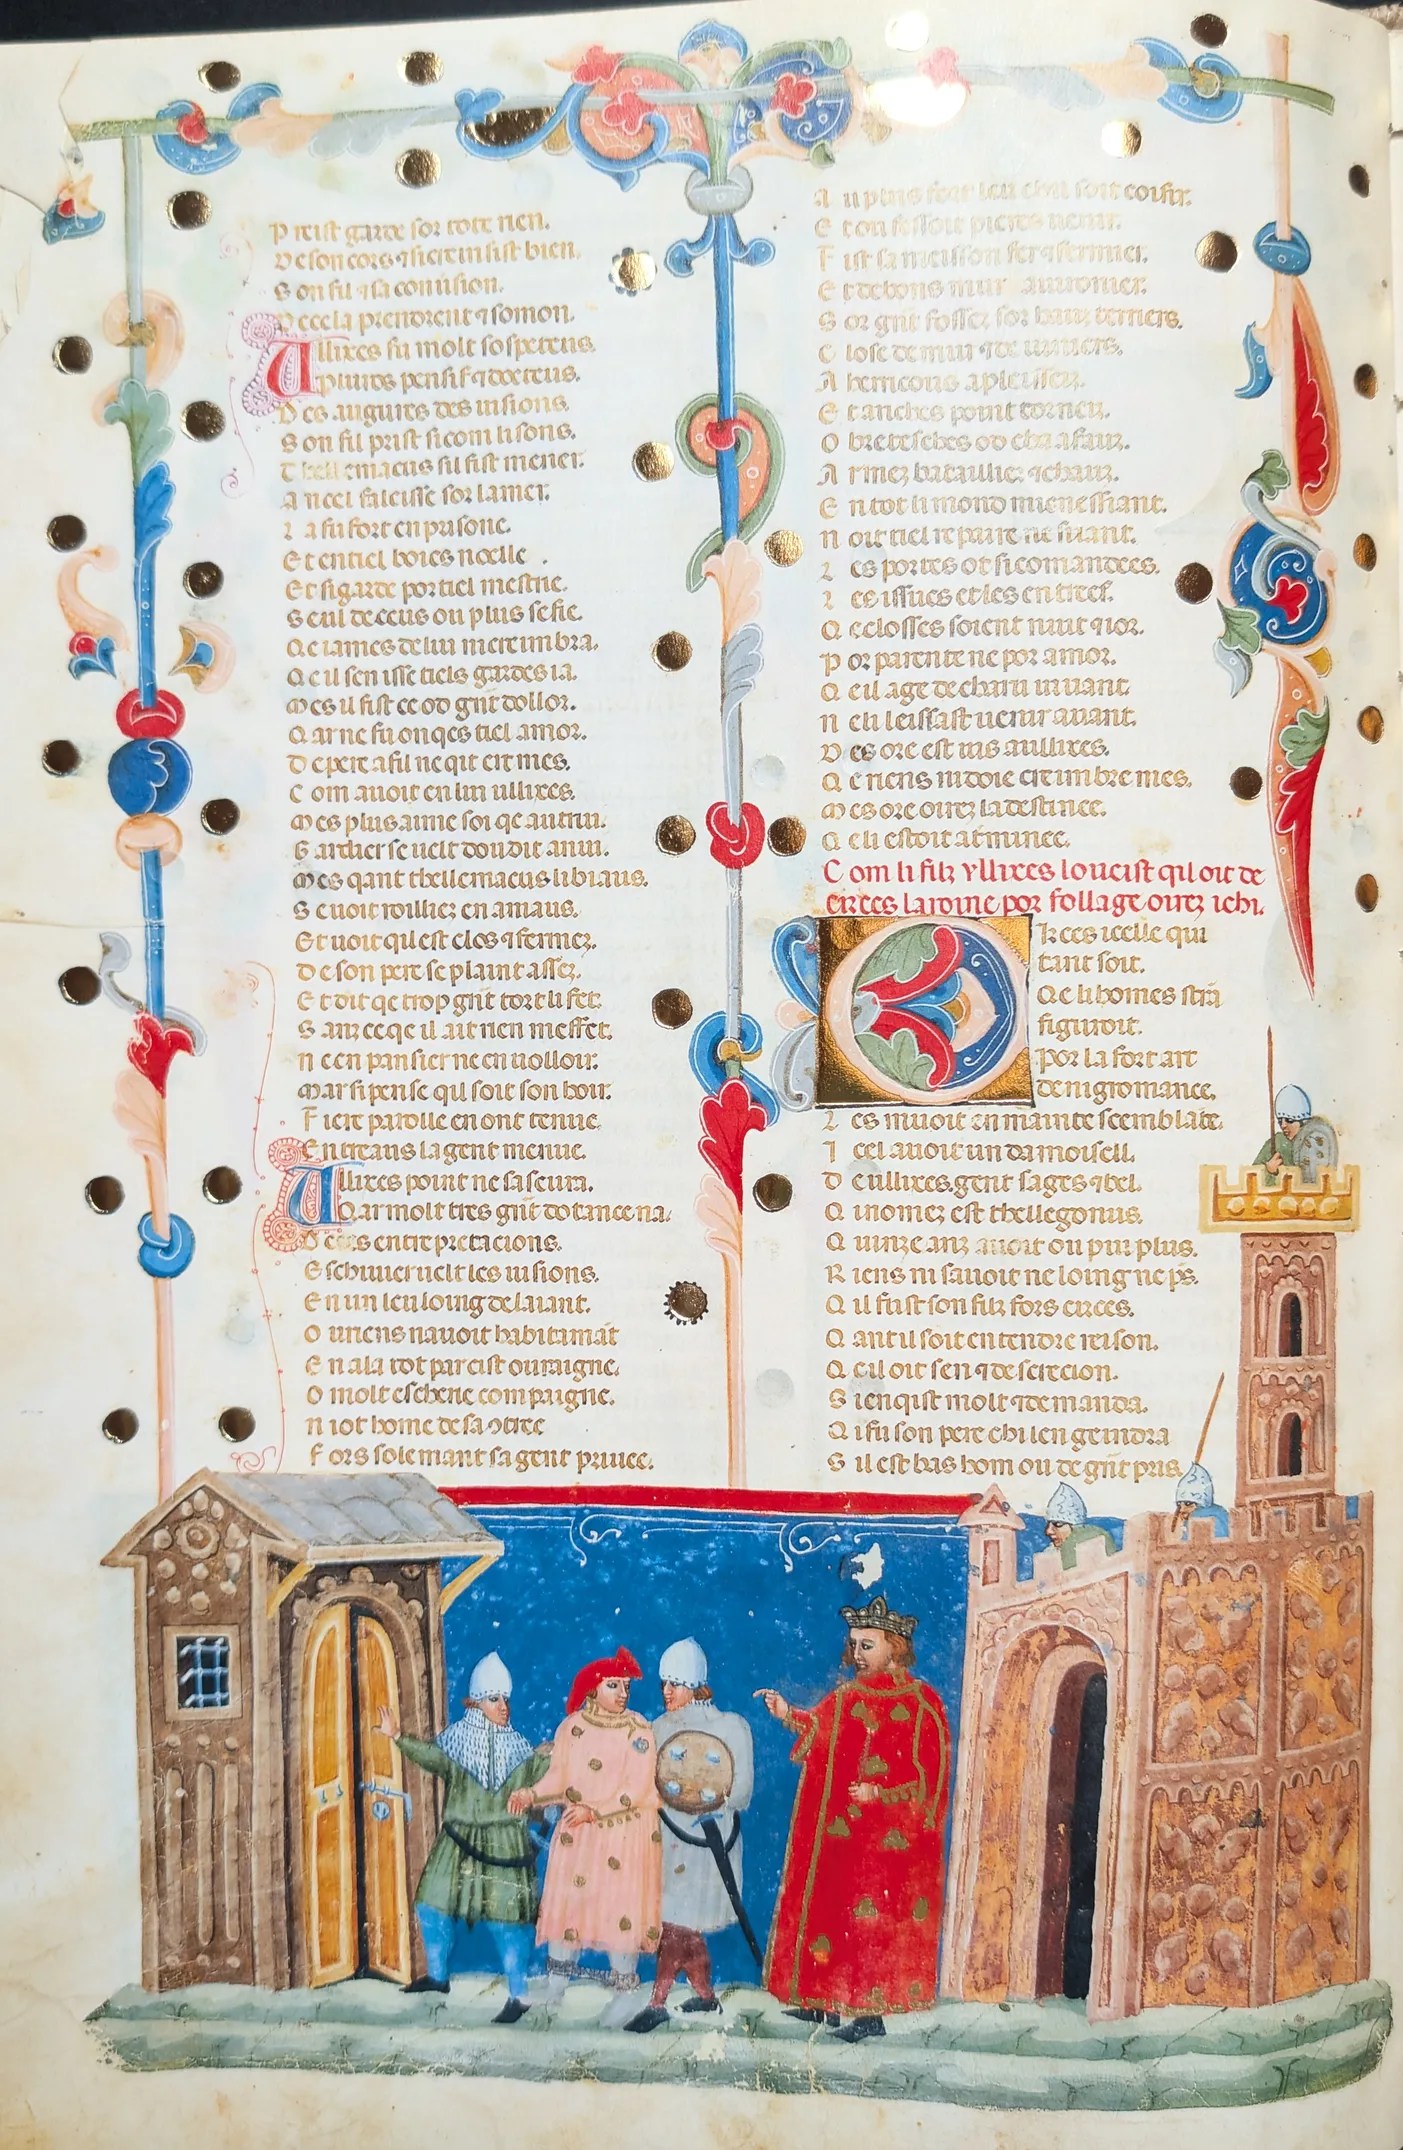 P reist garde sor tote rien.
D e son cors ⁊ si creinsist bien.
S on fil ⁊ sa conusion.
D e cela prendrent ⁊ somon.
Ullixes fu molt sospetens.
plurros pensif ⁊ docteus.
D es augures des uisions.
S on fil prist si com lisons.
T hellemacus fil fist mener.
A n cel falcusse sor la mer.
L a fu fort en prisone.
E t en tiel boies noelle .
E t si garde por tiel mestrie.
S eul de ceus ou plus se fie.
Q e iames de lui mer eimbra.
Q e il sen isse tiels gardes ia.
M es il fist ce od grãt dollor.
Q ar ne fu onqes tiel amor.
D e pere a fil ne qit eit mes.
C om auoit en lui ullixes.
M es plus aime soi qe autrui.
G arder se uelt dou dit anui.
M es qant thellemacus li biaus.
S e uoit roilliez en aniaus.
E t uoit qil est clos ⁊ fermez.
D e son pere se plaint assez.
E t dit qe trop grãt tort li fet.
S anz ce qe il ait rien meffet.
N e en pansier ne en uolloir.
Mar si pense qil soit son hoir.
F iere parolle en ont tenue.
E ntreaus la gent menue.
Ullixes point ne saseura.
Qar molt tres grãt dotance na.
D e ces entrepretacions.
E schiuer uelt les uisions.
E n un leu loing delaiant.
O u riens nauoit habitamãt
E n ala tot par cist ouraigne.
O molt escherie compaigne.
N i ot home de sa ɔtree
F ors solemant sa gent priuee.
A u plus fort leu chil soit coisir.
E t on fessoit pieres uenir.
F ist sa meisson fer ⁊ fermier.
E t de bons mur auironier.
S or grãt fossez sor hauz terriers.
C lose de mur ⁊ de uiuiers.
A hericons a pleissez.
E t anches point torneiz.
O bretesches od chafauz.
A rmez batailliez ⁊ chauz.
E n tot li mond mien essiant.
N oit tiel repaire ne si uant.
L es portes ot si comandees.
L es issues et les entrees.
Q e closses soient nuit ⁊ ior.
P or parente ne por amor.
Q e il age de charn uiuant.
N e li leissast uenir auant.
D es ore est uis a ullixes.
Q e riens ni doie creimbre mes.
M es ore oirez la destinee.
Q e li estoit a̅t̅minee.
C om li filz yllixes lo ucist qil oit de
circes la roine por follage oirez ichi.
Circes icelle qui
tant soit.
Qe li homes strã
figuroit.
Por la fort art
de nigromance.
L es muoit en mainte scemblãce.
I cel auoit un damoisell.
D e ullixes. gent sages ⁊ bel.
Q i nomez est thellegonus.
Q uinze anz auoit ou pui plus.
R iens ni sauoit ne loing ne ps̄.
Q il fust son filz fors circes.
Q ant il soit entendre reison.
Q e il oit sen ⁊ descrecion.
S i enqist molt ⁊ demanda.
Q i fu son pere chi lengendra
S il est bas hom ou de grãt pris